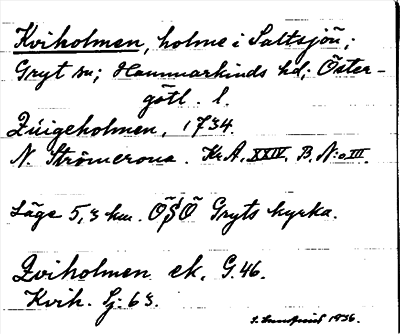 Kviholmen, holme i Saltsjön;
Gryt sn; Hammarkinds hd; Öster-
götl. l.
Zuigeholmen, 1734.
N. Strömcrona. Kr.A. XXIV. B. N:o III.
Läge 5,3 km. ÖSÖ Gryts kyrka.
Zviholmen ek. G. 46.
Kvih. Lj: 63.
1936.